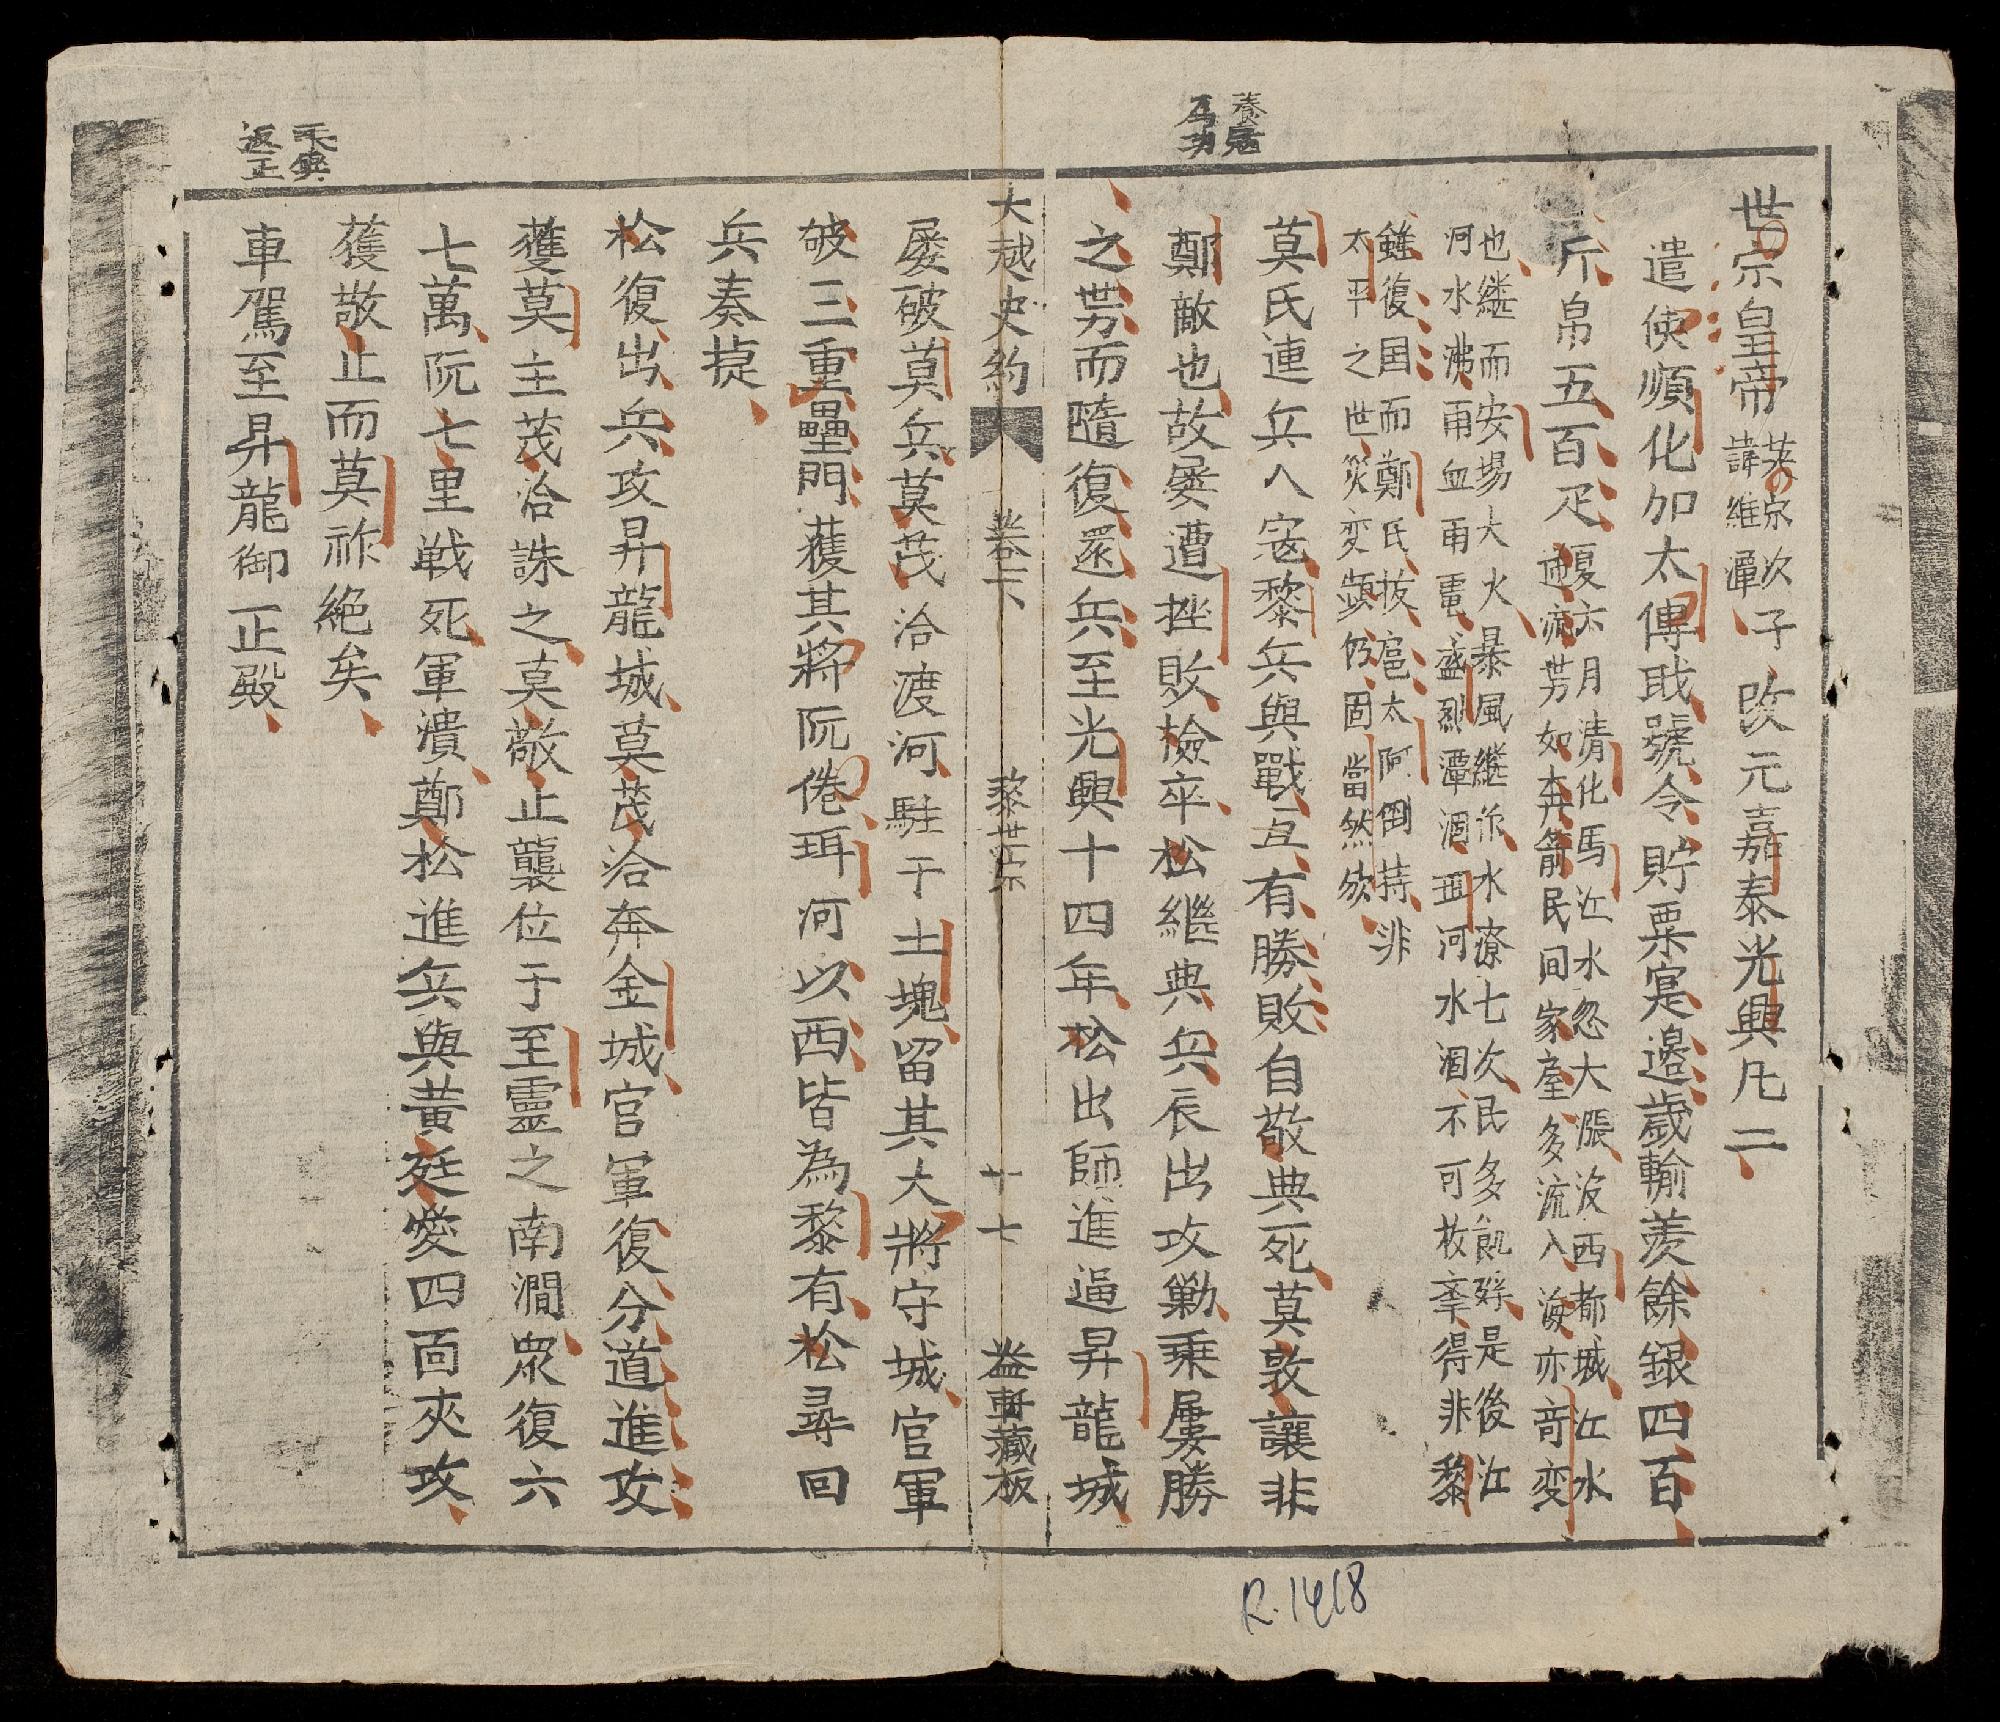 養寇
為功
世宗皇帝英宗次子諱維潭改元嘉泰光興凡二
遣使順化加太傅戢號令貯粟寔邊歲輸羨餘銀四百
斤帛五百疋夏六月清化馬江水忽大漲没西都城江水
通流势如奔箭民间家產多流入海亦奇变
也継而安塲大火暴風継作水潦七次民多飢殍是後江
河水沸雨血雨雹盛烈潭涸珥河水涸不可枚率得非黎
雖復国而鄭氏拔扈太阿倒持非
太平之世災变頻仍固當然欤
莫氏連兵入寇黎兵與戰互有勝敗自敬典死莫敦讓非
鄭敵也故屡遭挫敗撿卒松継典兵辰出攻勦乗屢勝
之势而隨復還兵至光興十四年松出師進逼昇龍城
大越史約 卷下 黎世宗 十七 益軒藏板
屡破莫兵莫茂洽渡河駐于土塊留其大將守城官軍
破三重壘門獲其將阮倦珥河以西皆為黎有松尋回
兵奏㨗
松復出兵攻昇龍城莫茂洽奔金城官軍復分道進攻
獲莫主茂洽誅之莫敬止襲位于至靈之南澗衆復六
七萬阮七里戦死軍潰鄭松進兵與黄廷愛四面夾攻
獲敬止而莫祚絶矣
車駕至昇龍御正殿
天鎮
返正
R.1418